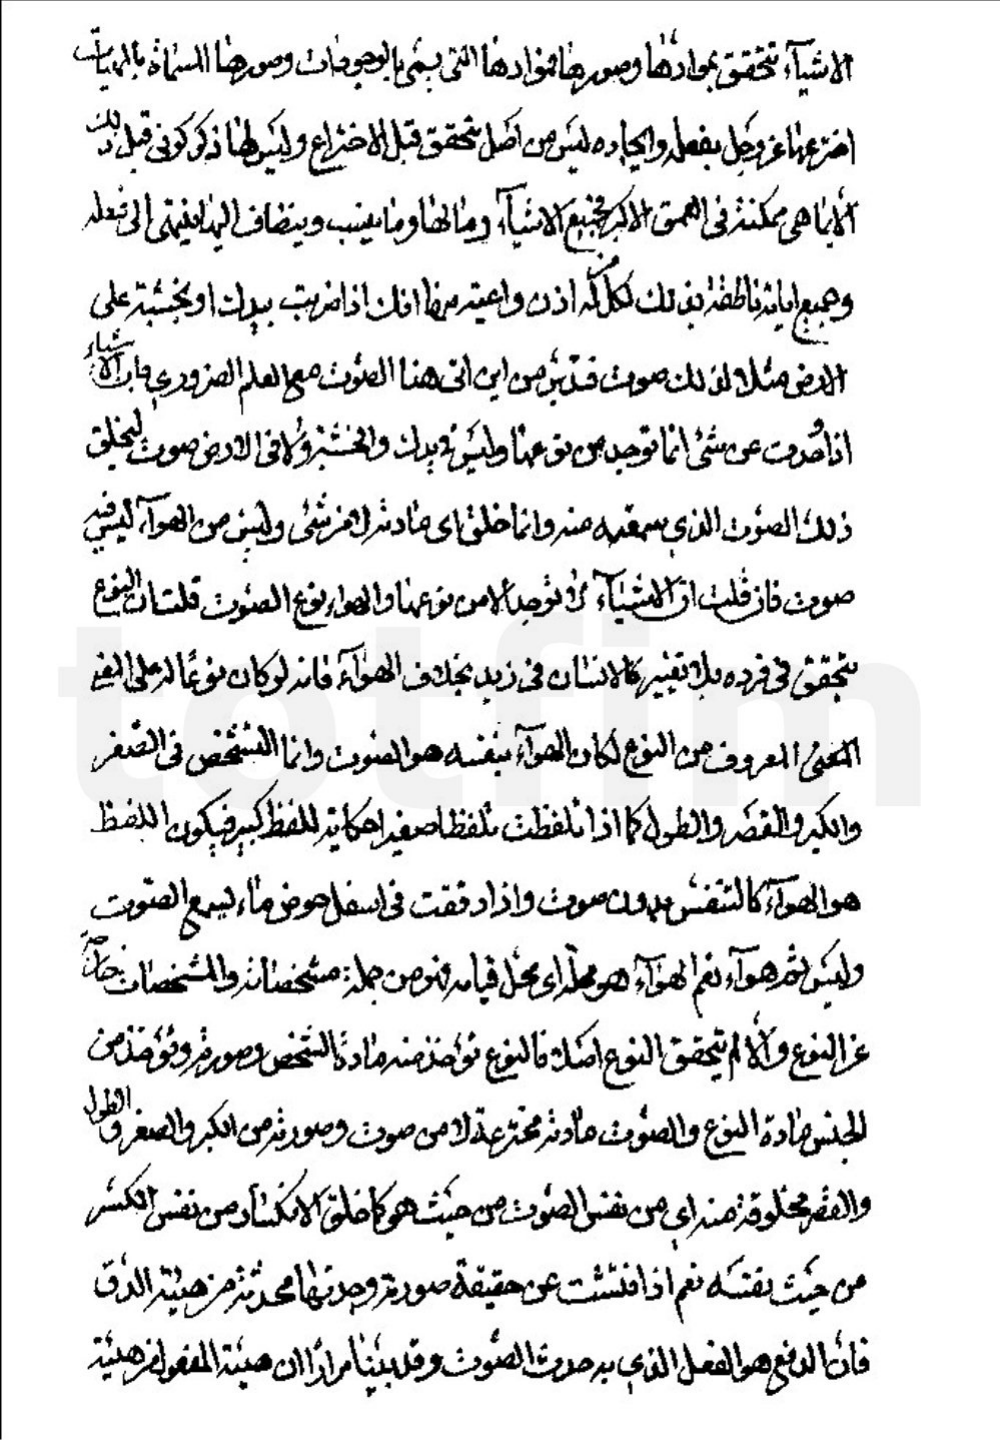 الاشيآء تتحقق بموادّها وصورها فموادها التى يسمى بالوجودات وصورها المسماة بالمهيات
اخترعها عز وجل بفعله وايجاده ليس من اصل يتحقق قبل الاختراع وليس لها ذكر كونى قبل ذلك
الا بما هى ممكنة فى العمق الاكبر فجميع الاشيآء وما لها وما ينسب وينضاف اليها ينتهى الى فعله
وجميع اياته ناطقة بذلك لكل اذن واعية منها انك اذا ضربت بيدك او بخشبة على
الارض مثلا ولذلك صوت فتدبّر من اين اتى هذا الصّوت مع العلم الضرورى بان الاشياء
اذا صدرت عن شئ انما توجد من نوعها وليس فى يدك والخشبة ولا فى الارض صوت ليخلق
ذلك الصّوت الذى سمعته منه وانما خلق اى مادته لا من شئ وليس من الهوآء ليس فيه
صوت فان قلت ان الاشيآء لا توجد الا من نوعها والهواء نوع الصّوت قلت ان النوع
يتحقق فى فرده بلا تغيير كالانسان فى زيد بخلاف الهوآء فانه لو كان نوعًا له على
المعروف من النوع لكان الهوآء بنفسه هو الصّوت وانما التشخص فى الصّغر
والكبر والقصر والطول كما اذا تلفظت تلفظا صغيرا حكاية للفظ كبير فيكون اللفظ
هو الهوآء كالتنفس بدون صوت واذا دققت فى اسفل حوض مآء ليسمع الصّوت
وليس ثمّ هوآء نعم الهوآء هو محلّه اى محل قيامه فهو من جملة مشخصاته والمشخصات خارجة
عن النوع والّا لم يتحقق النوع اصلا فالنوع تؤخذ منه مادة الشخص وصورته وتؤخذ من
الجنس مادة النوع والصّوت مادته مخترعة لا من صوت وصورته من الكبر والصغر والطول
والقصر مخلوقة منه اى من نفس الصّوت من حيث هو كما خلق الانكسار من نفس الكسر
من حيث نفسه نعم اذا فتشت عن حقيقة صورته وجدتها محدثة من هيئة الدّق
فانّ الدفع هو الفعل الذى به حدث الصّوت وقد بيّنّا مرارًا ان هيئة المفعول من هيئة